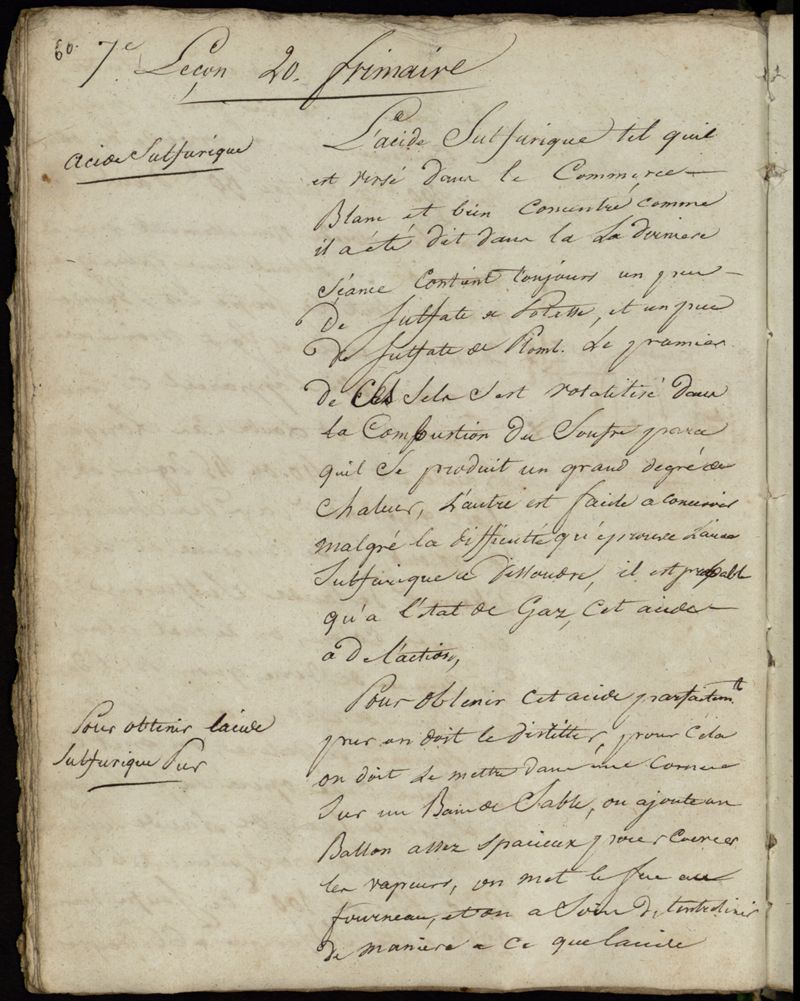 60.
7e Leçon 20. frimaire
Acide Sulfurique
L'acide Sulfurique tel quil
est versé dans le Commerce
Blanc et bien Concentré comme
il a été dit dans la La derniere
Séance Contient toujours un peu
De Sulfate de Potasse, et un peu
De Sulfate de Plomb. Le premier
de Ces Sels s'est volatilisé dans
la Combustion du Soufre parce
quil se produit un grand degré de
Chaleur, L'autre est facile a concevoir
malgré la difficulté qu'eprouve L'acide
Sulfurique a Dissoudre, il est probable
qu'a l'état de Gaz, Cet acide
a De l'action,
Pour obtenir l'acide
Sulfurique Pur
Pour obtenir cet acide parfaitemt
pur on doit le distiller, pour Céla
on doit Le mettre dans une Cornue
Sur un Bain de Sable, on ajoute un
Ballon assez Spacieux pour
les vapeurs, on met le feu au
fourneau, et on a Soin De l'entretenir
De maniere a Ce que l'acide